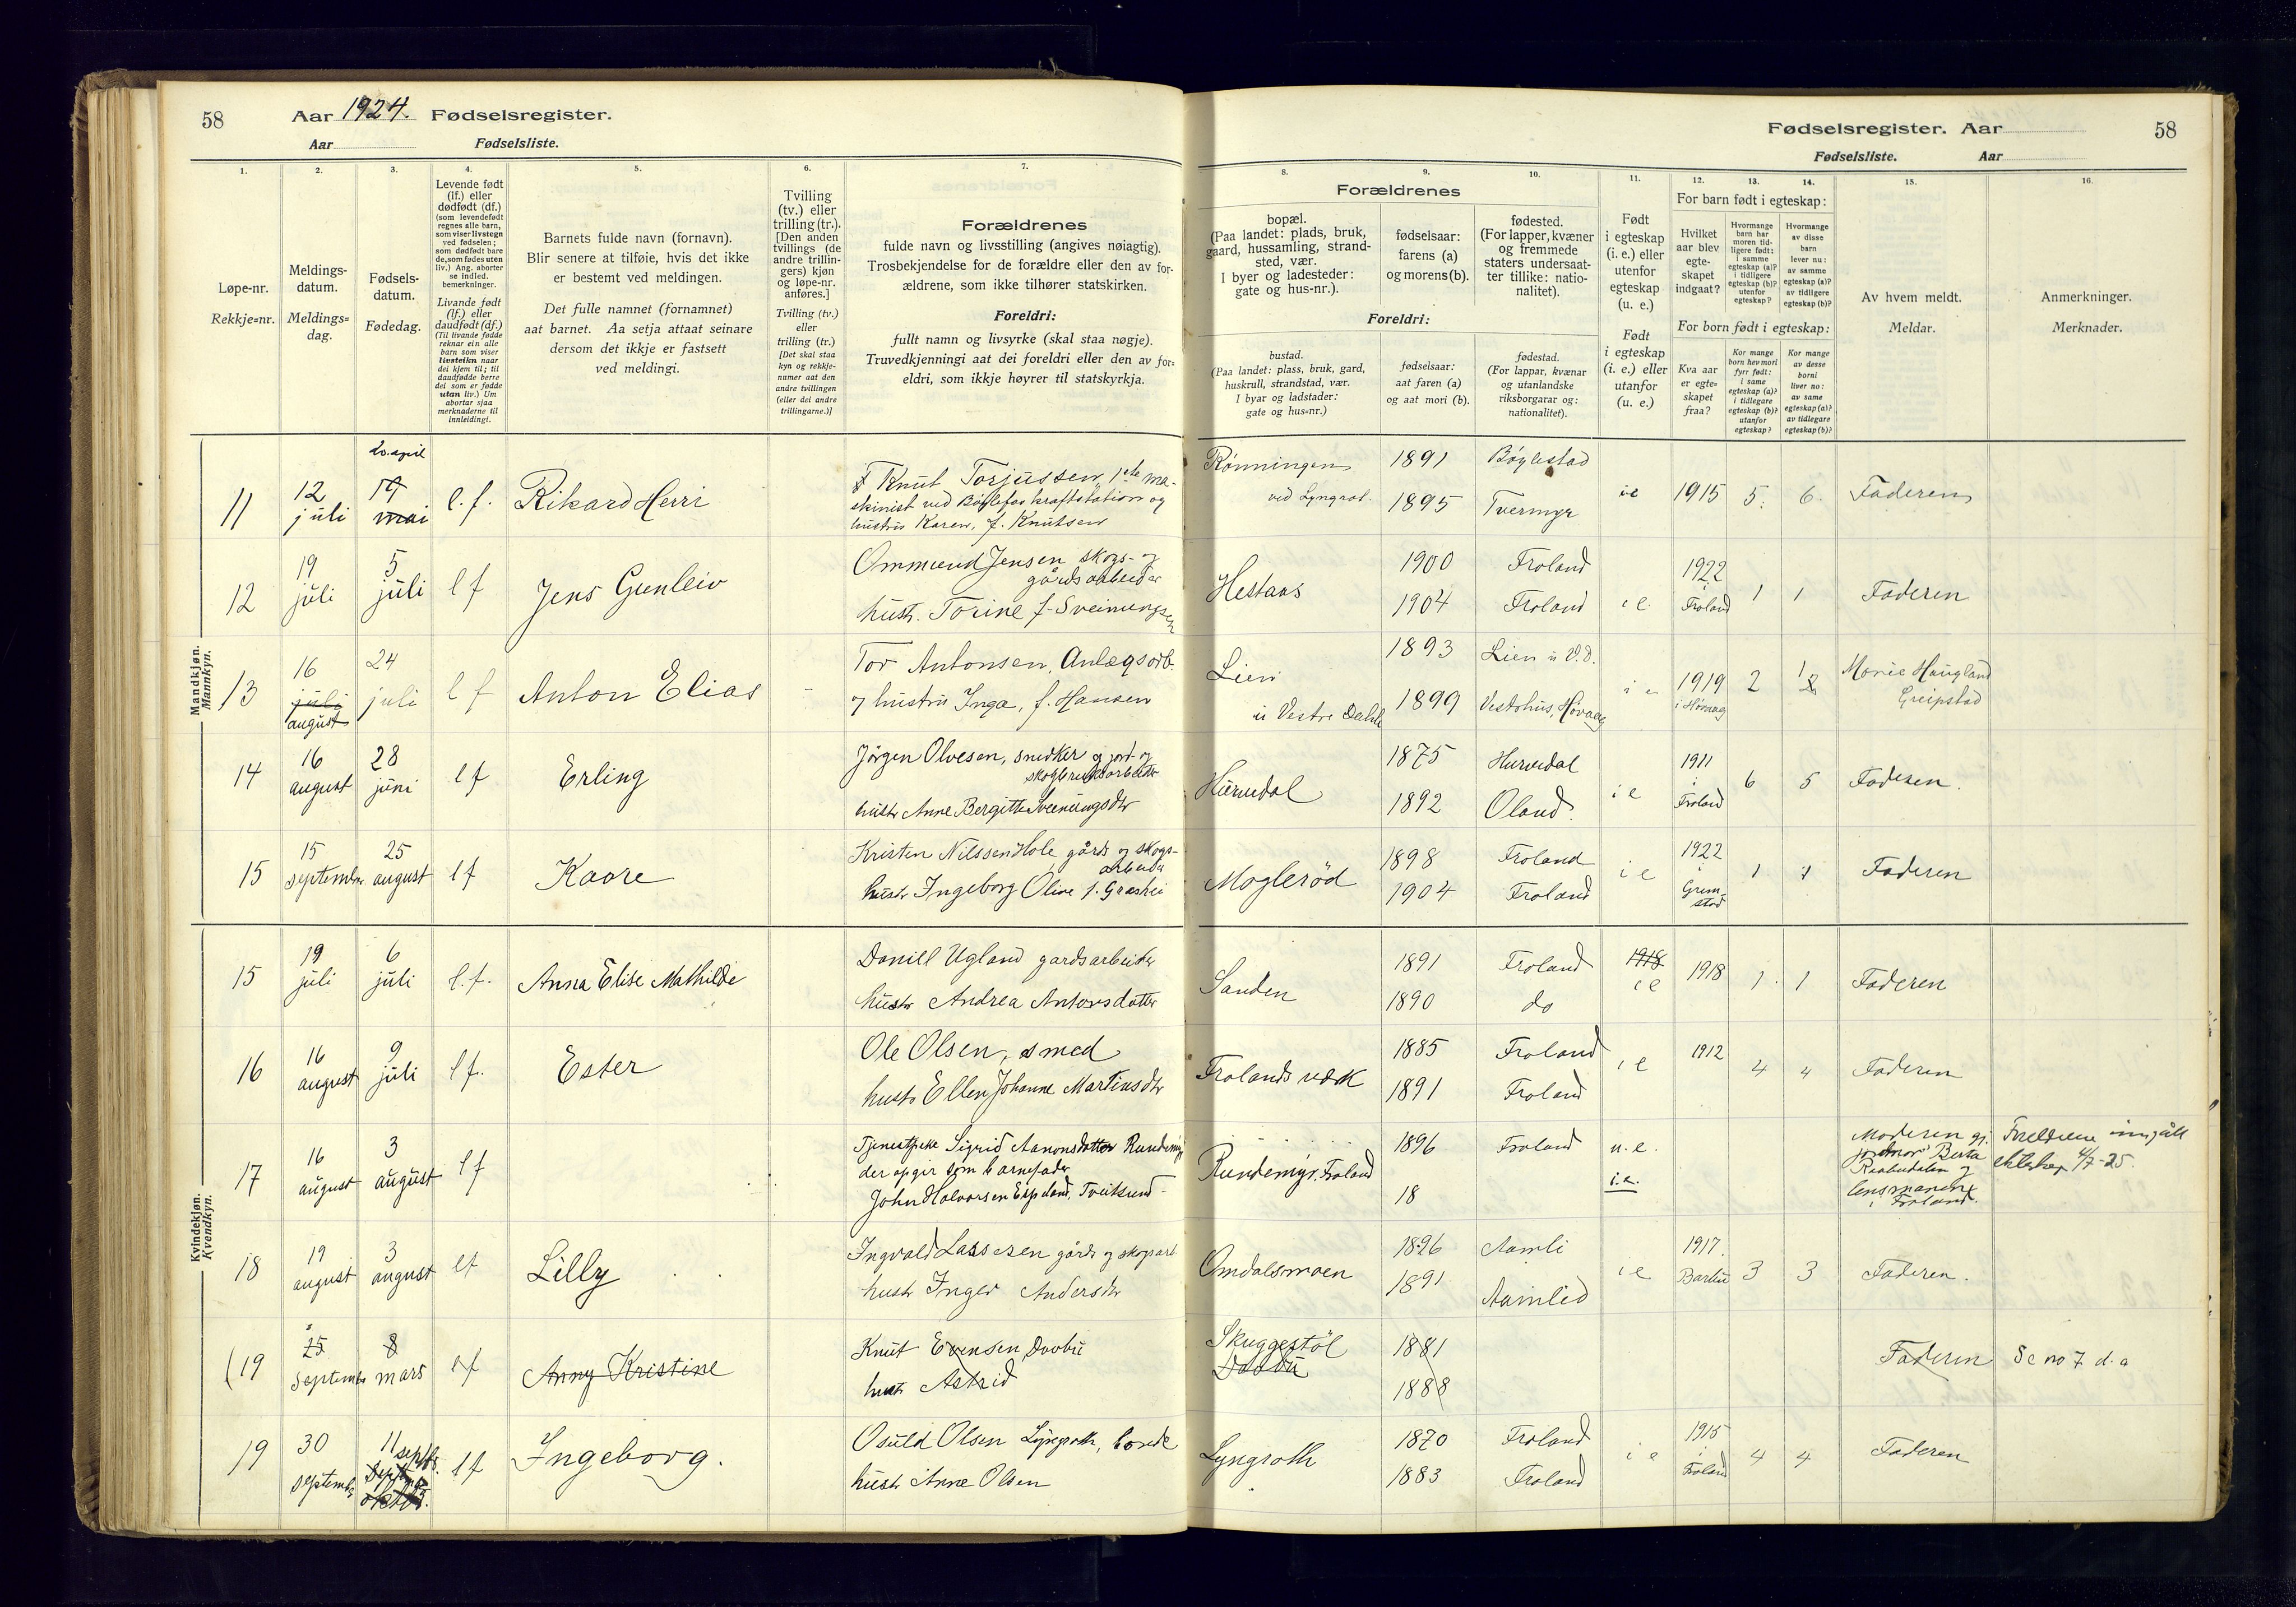 58
Aar 1924. Fødselsregister.
Aar Fødselsliste.
1.
Løpe-nr.
Rekkje=nr.
2.
Meldings-
datum.
Meldings=
dag.
3.
Fødsels-
datum.
Fødedag.
4.
Levende født
(lf.) eller
dødfødt (df.)
(som levendefødt
regnes alle barn,
som viser livstegn
ved fødselen;
som dødfødt bare
de, som fødes uten
liv.) Ang. aborter
se indled.
bemerkninger.
Livande født
(lf.) eller
daudfødt (df.)
(Til livande fødde
reknar ein alle
barn som viser
livsteikn naar
dei kjem til; til
daudfødde berre
dei som er fødde
utan liv.) Um
abortar sjaa
merknaderne til
innleidingi.
5.
Barnets fulde navn (fornavn).
Blir senere at tilføie, hvis det ikke
er bestemt ved meldingen.
Det fulle namnet (fornamnet)
aat barnet. Aa setja attaat seinare
dersom det ikkje er fastsett
ved meldingi.
6.
Tvilling
(tv.) eller
trilling (tr.).
[Den anden
tvillings (de
andre trillin-
gers) kjøn
og løpe-nr.
anføres.]
Tvilling (tv.)
eller
trilling (tr.)
[Det skal staa
kyn og rekkje-
numer aat den
andre tvillingen
(eller dei andre
trillingarne.)]
7.
Forældrenes
fulde navn og livsstilling (angives nøiagtig).
Trosbekjendelse for de forældre eller den av for-
ældrene, som ikke tilhører statskirken.
Foreldri:
fullt namn og livsyrke (skal staa nøgje).
Truvedkjenningi aat dei foreldri eller den av for-
eldri, som ikkje høyrer til statskyrkja.
Mandkjøn.
Mannkyn.
11
12
juli
20. april
19
mai
l. f.
Rikard Herri
Knut Torjussen, 1ste ma-
skinist ved Bøylefos kraftstation og
hustru Karen, f. Knutsen
12
19
juli
5
juli
l f
Jens Gunleiv
Ommund Jensen skogs- og
gårdsarbeider
hustr. Torine f. Sveinungsen
13
16
juli
august
24
juli
l f
Anton Elias
Tor Antonsen, Anlægsarb.
og hustru Inga, f. Hansen
14
16
august
28
juni
l f
Erling
Jørgen Olvesen, snedker og jord- og
skogbruksarbeider
hustr Anne Bergitte Sveinungsdtr
15
15
september
25
august
l f
Kaare
Kristen Nilssen Hole, gårds og skogs-
arbeider
hustr Ingeborg Olive f. Græshei
Kvindekjøn.
Kvendkyn.
15
19
juli
6
juli
l. f.
Anna Elise Mathilde
Daniell Ugland gardsarbeider
hustr Andrea Antonsdatter
16
16
august
9
juli
l f.
Ester
Ole Olsen, smed
hustr Ellen Johanne Martinsdtr
17
16
august
3
august
l f
Tjenestpike Sigrid Aanonsdatter Rundemyr
der opgir som barnefader
John Halvorsen Espeland, Tveitsund
18
19
august
3
august
l f
Lilly
Ingvald Lassesen gårds og skogsarb
hustr Inger Andersdtr
(19
25
September
8
mars
l f
Anny Kristine
Knut Evensen Dovbu
hustr Astrid
19
30
September
11 septbr.
l f
Ingeborg.
Osuld Olsen Lyngroth, bonde
hustr Anne Olsen
Fødselsregister. Aar
58
Fødselsliste. Aar
8.
Forældrenes
bopæl.
(Paa landet: plads, bruk,
gaard, hussamling, strand-
sted, vær.
I byer og ladesteder:
gate og hus-nr.).
Foreldri:
bustad.
(Paa landet: plass, bruk, gard,
huskrull, strandstad, vær.
I byar og ladstader:
gate og hus=nr.)
9.
fødselsaar:
farens (a)
og morens (b).
fødselsaar:
aat faren (a)
og aat mori (b).
10.
fødested.
(For lapper, kvæner
og fremmede
staters undersaat-
ter tillike: natio-
nalitet).
fødestad.
(For lappar, kvænar
og utanlandske
riksborgarar og:
nationalitet).
11.
Født
i egteskap
(i. e.) eller
utenfor
egteskap
(u. e.)
Født
i egteskap
(i. e.) eller
utanfor
(u. e.)
12.
For barn født i egteskap:
Hvilket
aar blev
egte-
skapet
indgaat?
For born født i egteskap:
Kva aar
er egte=
skapet
fraa?
13.
Hvormange
barn har
moren tid-
ligere født:
i samme
egteskap (a)?
i tidligere
egteskap (b)?
utenfor
egteskap?
Kor mange
born hev mori
fyrr født:
i same
egteskap (a)?
i tidlegare
egteskap (b)?
utanfor
egteskap?
14.
Hvormange
av disse
barn
lever nu:
av samme
egteskap (a)?
av tidligere
egteskap (b)?
Kor mange
av desse
borni
liver no:
av same
egteskap (a)?
av tidlegare
egteskap (b)?
15.
Av hvem meldt.
Meldar.
16.
Anmerkninger.
Merknader.
Rønningen
ved Lyngrot
1891
1895
Bøylestad
Tvermyr
i e
1915
5.
6.
Faderen
Hestaas
1900
1904
Froland
Froland
i e
1922
i
Froland
1
1
Faderen
Lien
i Vestre Dahle
1893
1899
Lien i V.D.
Vestshus, Høvaag
i e
1919
i Høvaag
2
1
2
Marie Haugland
Greipstad
Hurvedal
1875
1892
Hurvedal
Oland.
i e
1911
i
Froland
6
5
Faderen.
Moglerød
1898
1904
Froland
Froland
i e
1922
i
Grim-
stad
1
1
Faderen
Sanden
1891
1890
Froland
do
1918
i e
1918
1.
1
Faderen
Frolands værk
1885
1891
Froland
Froland
i e
1912
4
4
Faderen
Rundemyr, Froland
1896
18
Froland
u. e.
i. e.
Moderen gj.
jordmor Berta
og
lensmannen
i Froland.
Foreldrene inngått
ekteskap 4/7-25.
Omdalsmoen
1896
1891
Aamli
Aamlid
i e
1917.
Barbu
3
3
Faderen.
Skuggestøl
Dovbu
1881
1888
Faderen
Se no 7 d. a
Lyngroth
1870
1883
Froland
Froland
i e
1915
i
Froland
4
4
Faderen